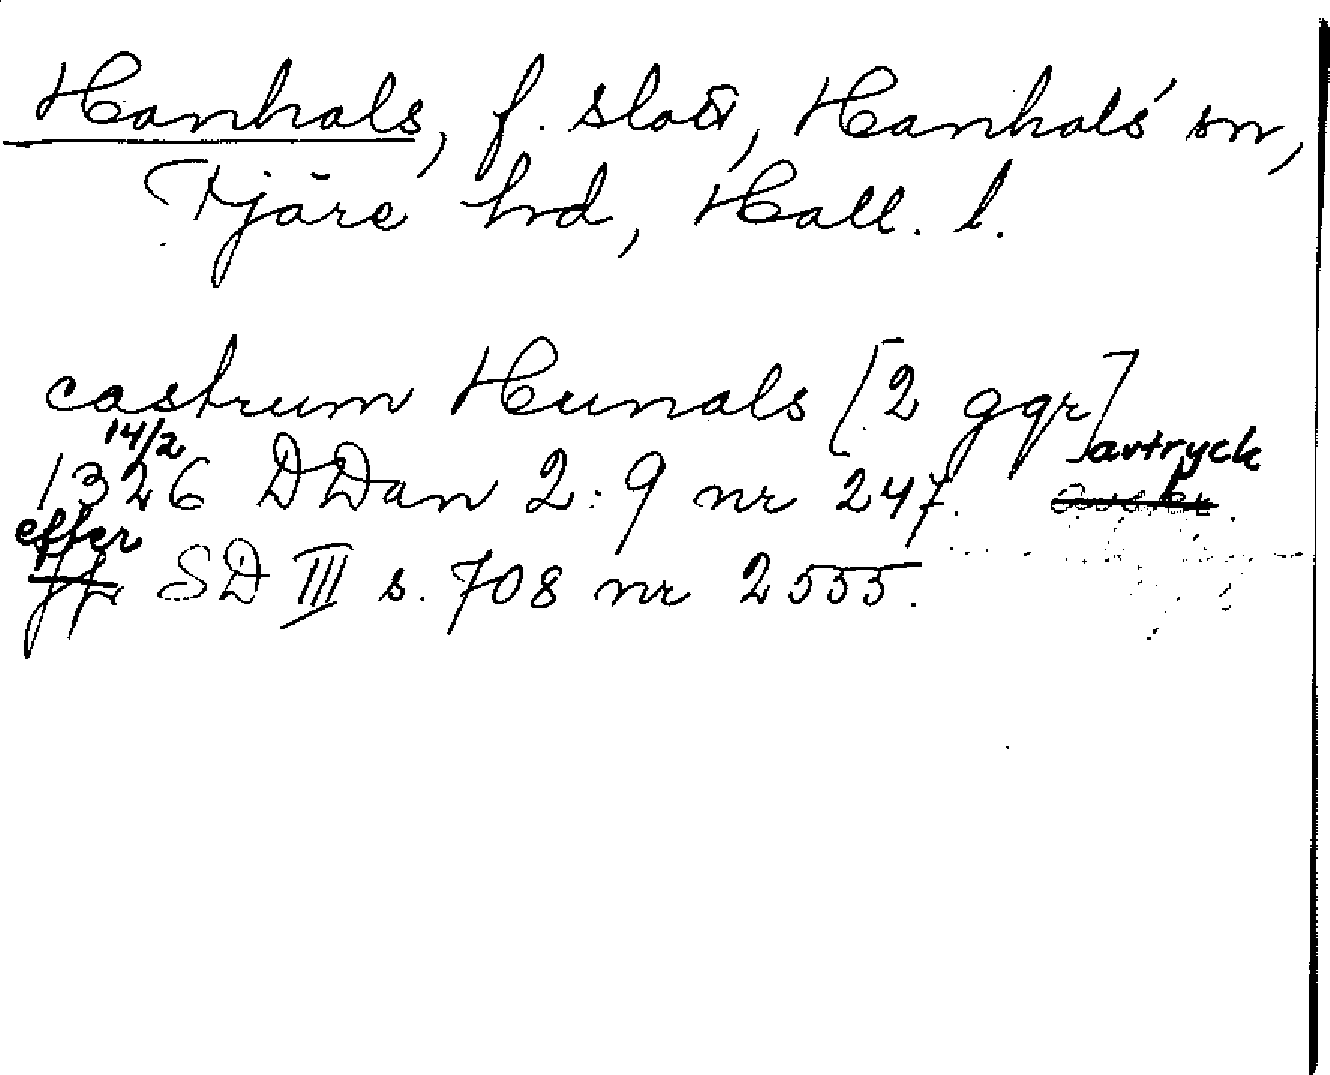 Hanhals, f. slott, Hanhals sn,
Fjäre hd, Hall. l.
castrum Hunals [2 ggr]
14/2
1326 DDan 2:9 nr 247. avtryck
efter
SD III s. 708 nr 2555.